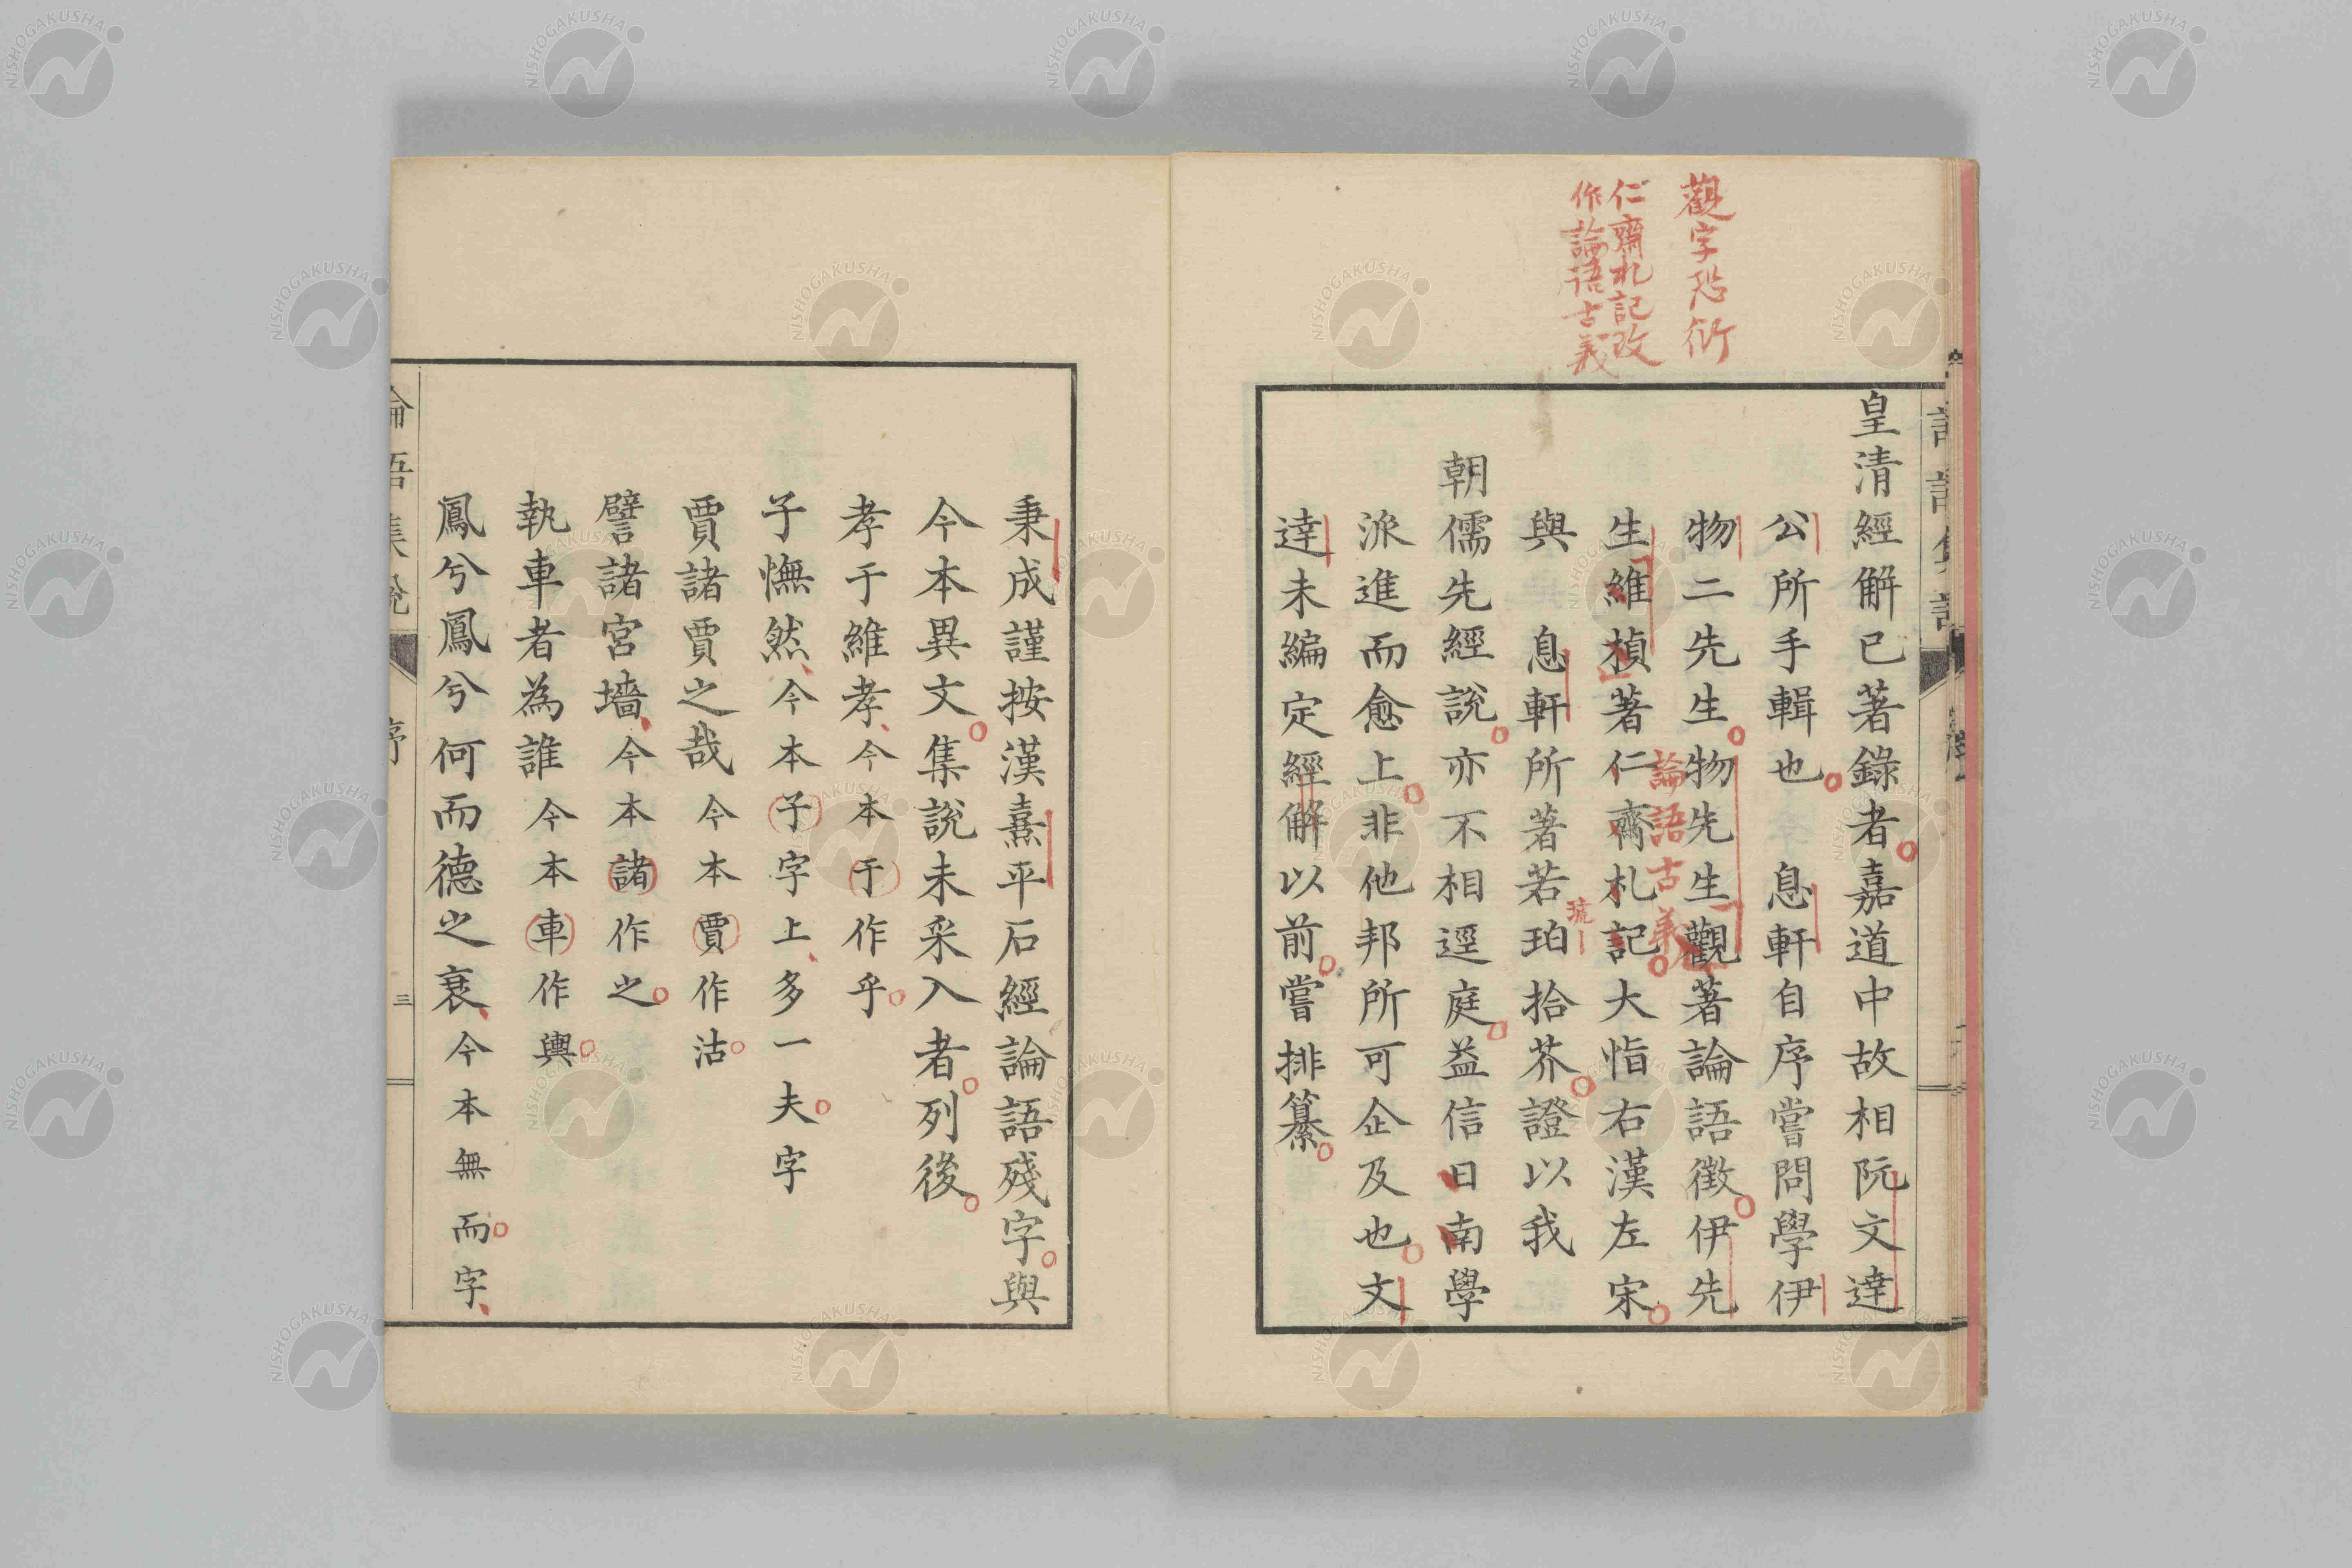 觀字恐衍
仁齋札記改
作論語古義
皇清經解已著錄者嘉道中故相阮文達
公所手輯也 息軒自序嘗問學伊
物二先生物先生觀著論語徵伊先
生維楨著仁齋札記大恉右漢左宋
論語古義
與 息軒所著若珀拾芥證以我
琉
朝儒先經說亦不相逕庭益信日南學
派進而愈上非他邦所可企及也文
達未編定經解以前嘗排纂
秉成謹按漢熹平石經論語殘字與
今本異文集說未采入者列後
孝于維孝今本于作乎
子憮然今本子字上多一夫字
賈諸賈之哉今本賈作沽
譬諸宮墻今本諸作之
執車者為誰今本車作輿
鳳兮鳳兮何而德之衰今本無而字
論語集說
序
三
NISHOGAKUSHA